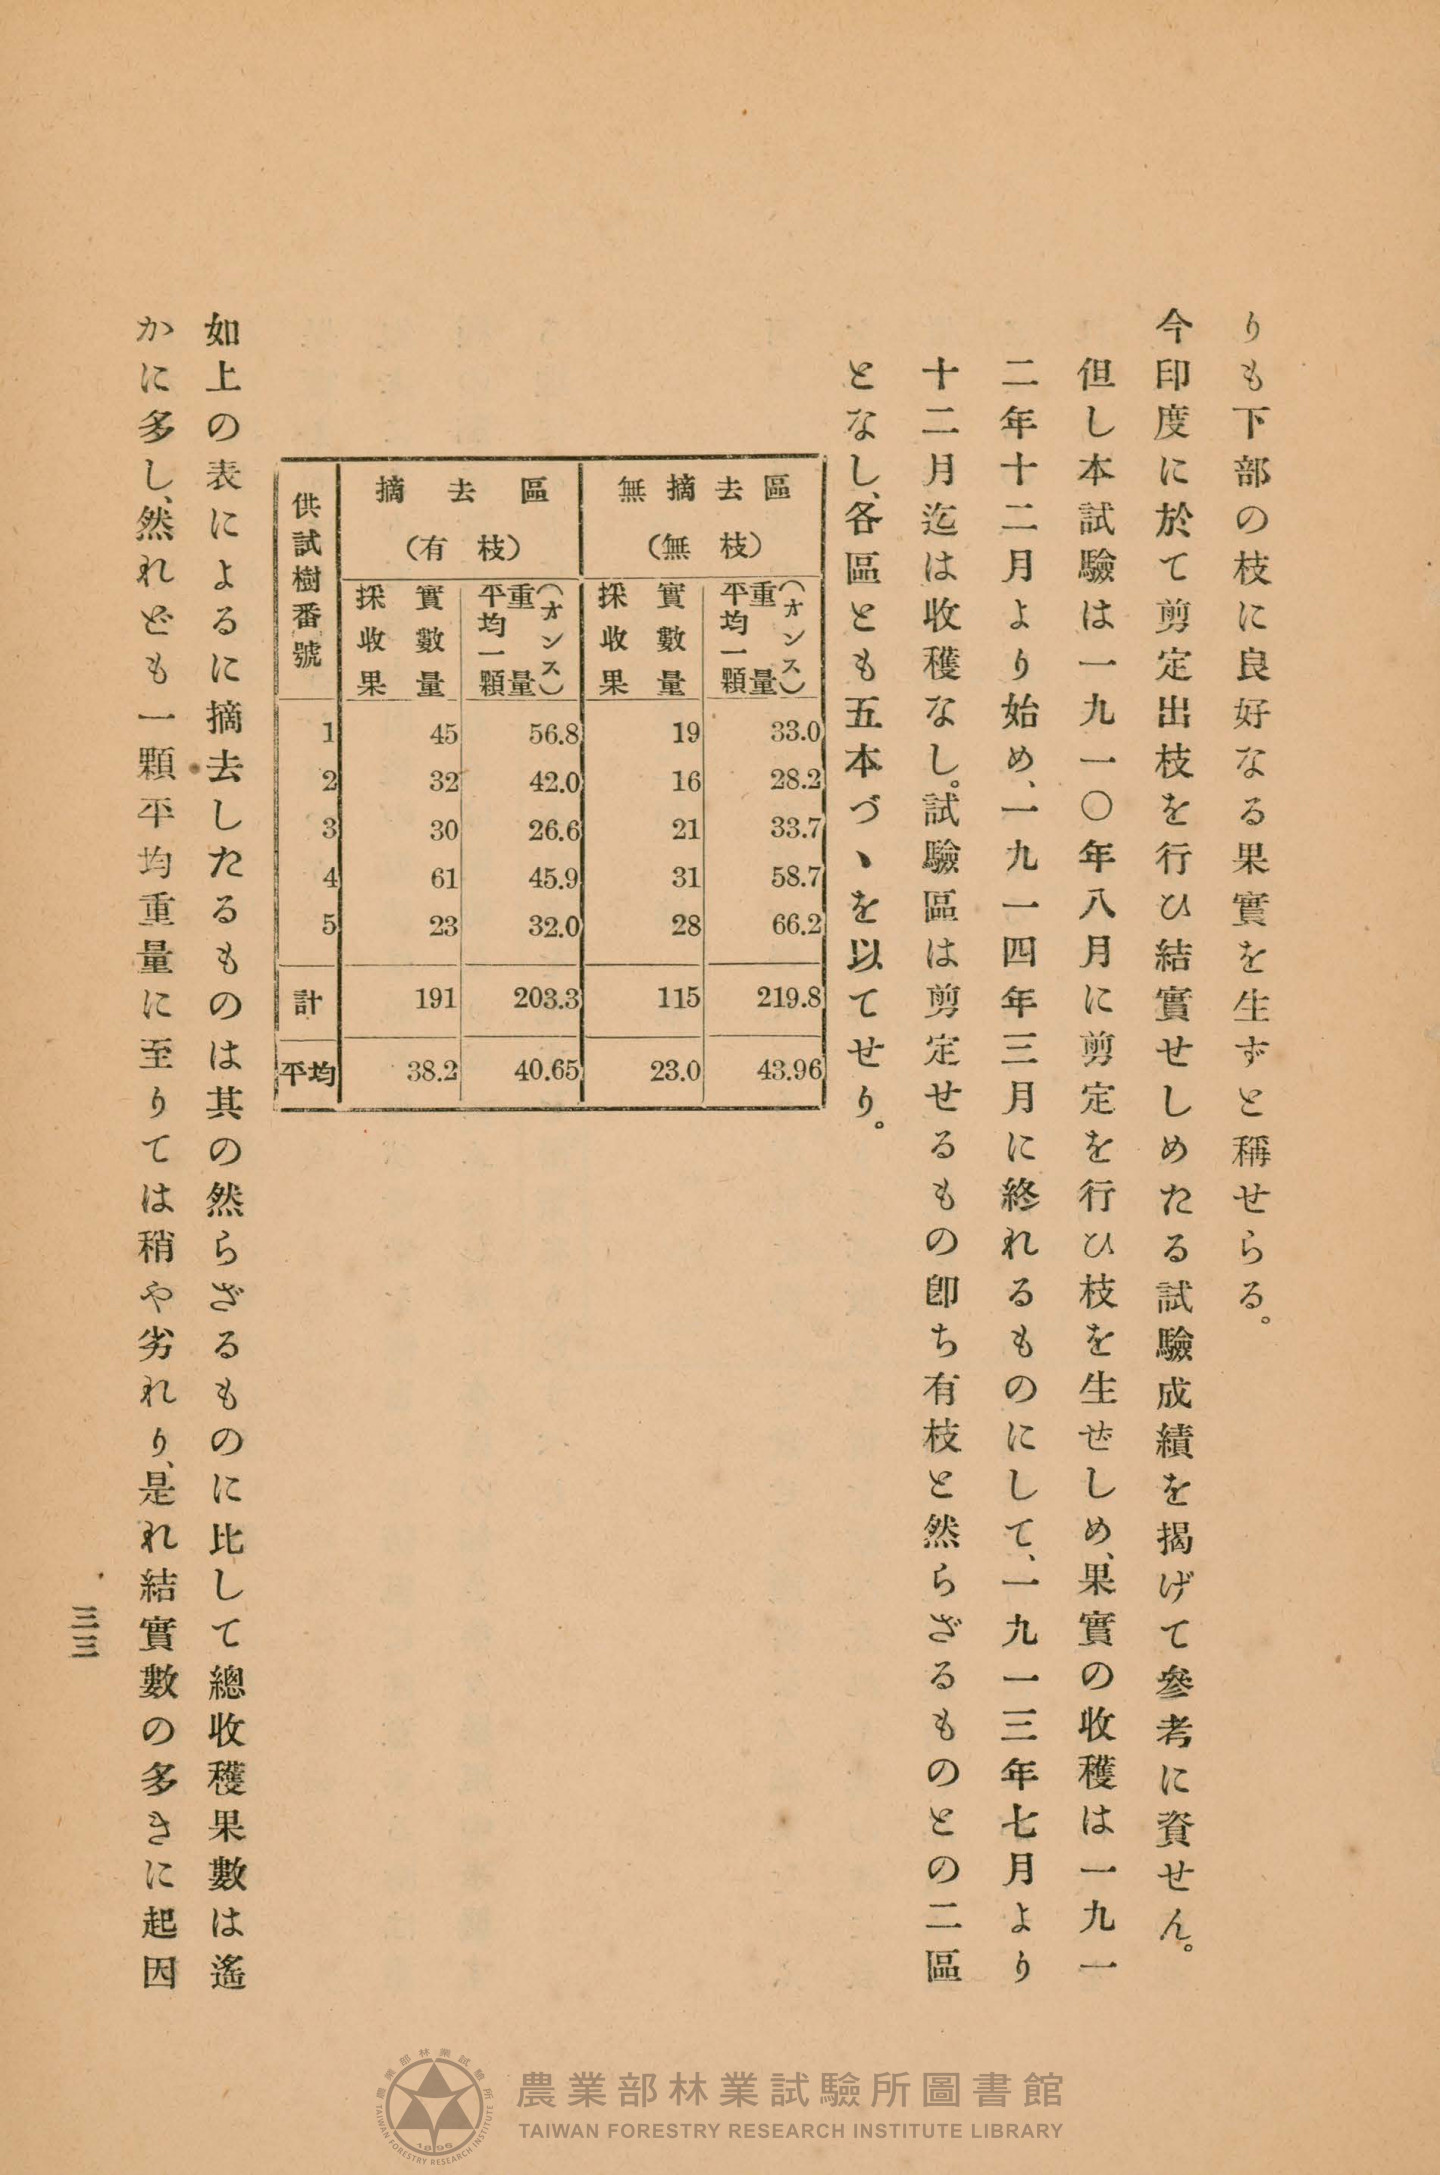 りも下部の枝に良好なる果實を生ずと稱せらる。
今印度に於て剪定出枝を行ひ結實せしめたる試驗成績を揭げて參考に資せん。
但し本試驗は一九一〇年八月に剪定を行ひ枝を生ぜしめ、果實の收穫は一九一
二年十二月より始め、一九一四年三月に終れるものにして、一九一三年七月より
十二月迄は收穫なし。試驗區は剪定せるもの卽ち有枝と然らざるものとの二區
となし、各區とも五本づゝを以てせり。
供試樹番號 摘去區 無摘去區
（有枝） （無枝）
採收果實數量 平均一顆重量（オンス） 採收果實數量 平均一顆重量（オンス）
1 45 56.8 19 33.0
2 32 42.0 16 28.2
3 30 26.6 21 33.7
4 61 45.9 31 58.7
5 23 32.0 28 66.2
計 191 203.3 115 219.8
平均 38.2 40.65 23.0 43.96
如上の表によるに摘去したるものは其の然らざるものに比して總收穫果數は遙
かに多し、然れども一顆平均重量に至りては稍や劣れり、是れ結實數の多きに起因
三三
農業部林業試驗所圖書館
TAIWAN FORESTRY RESEARCH INSTITUTE LIBRARY
農業部林業試驗所
TAIWAN FORESTRY RESEARCH INSTITUTE
1896